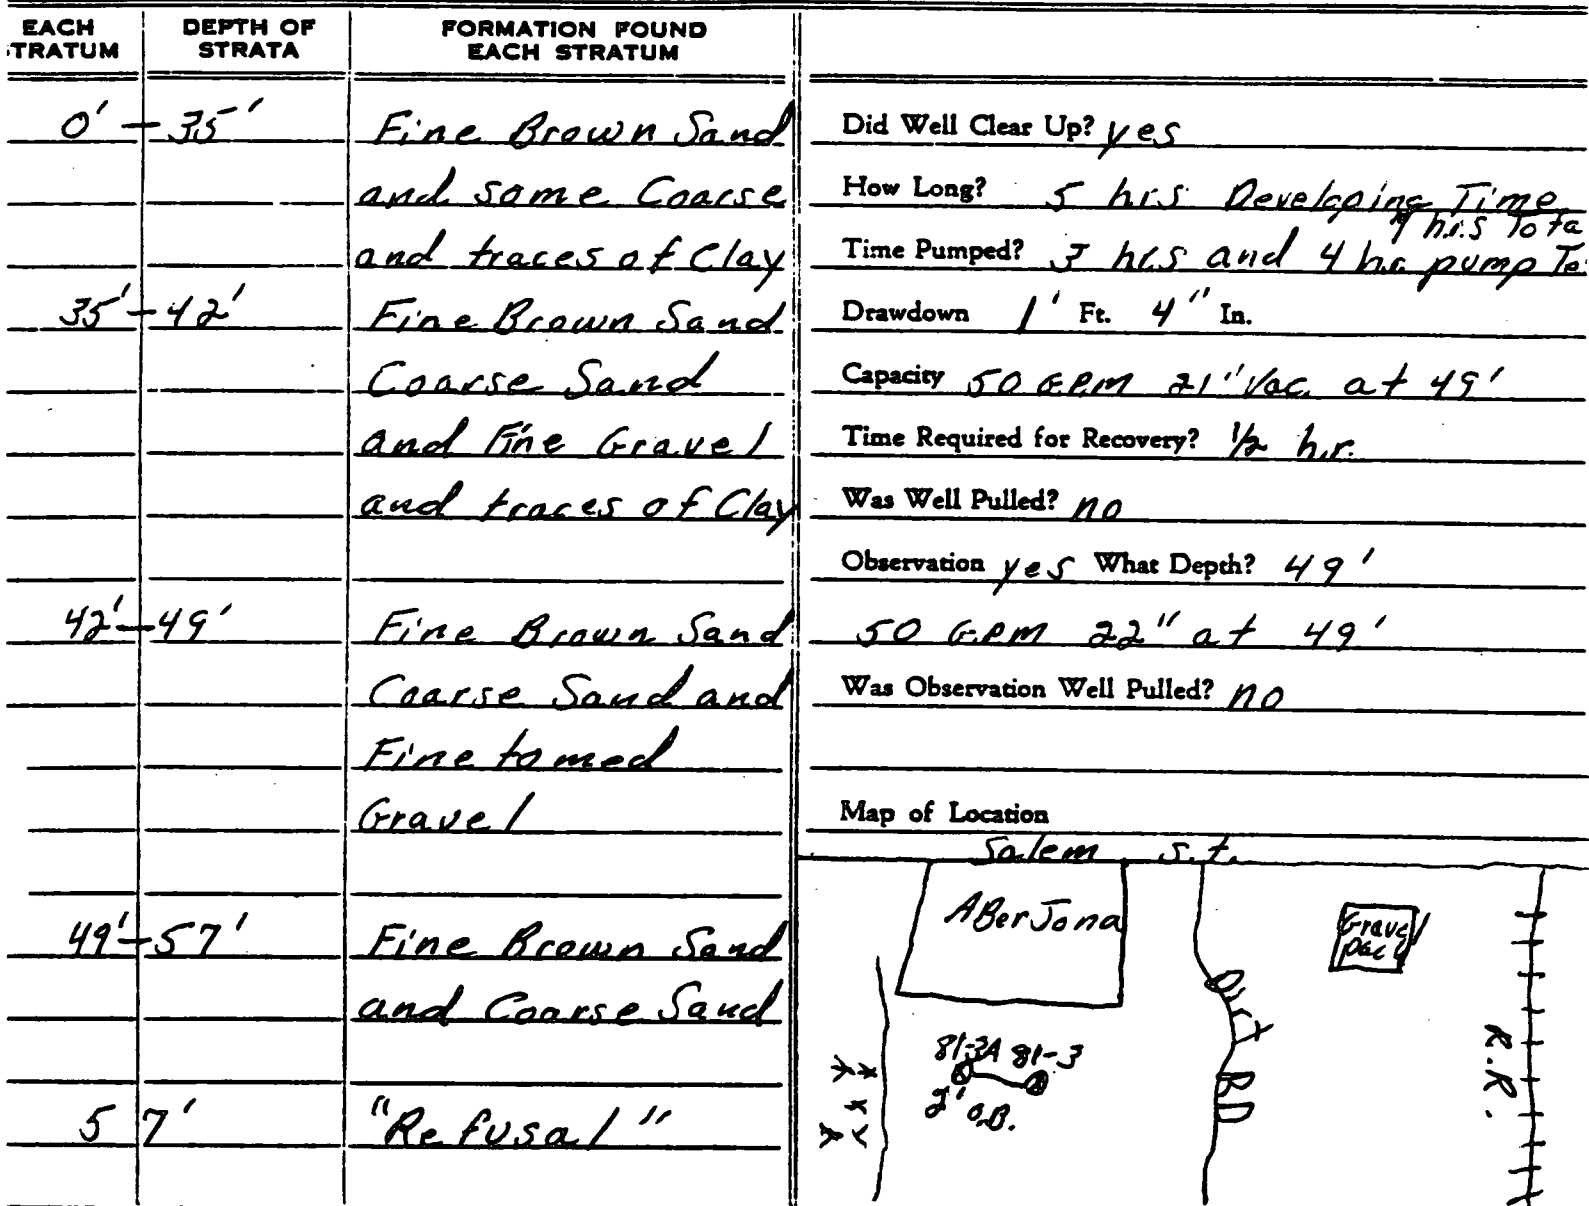 EACH STRATUM DEPTH OF STRATA FORMATION FOUND EACH STRATUM
0' - 35' Fine Brown Sand
and some Coarse
and traces of Clay
35' - 42' Fine Brown Sand
Coarse Sand
and Fine Gravel
and traces of Clay
42' - 49' Fine Brown Sand
Coarse Sand and
Fine to med
Gravel
49' - 57' Fine Brown Sand
and Coarse Sand
57' "Refusal"
Did Well Clear Up? yes
How Long? 5 hrs Developing Time
9 hrs Tota
Time Pumped? 3 hrs and 4 hr. pump Te
Drawdown 1' Ft. 4" In.
Capacity 50 G.P.M 21" Vac. at 49'
Time Required for Recovery? 1/2 hr.
Was Well Pulled? no
Observation yes What Depth? 49'
50 G.P.M 22" at 49'
Was Observation Well Pulled? no
Map of Location
Salem st.
ABerJona
Gravel
pac
Dirt RD
R.R.
81-3A 81-3
2' O.B.